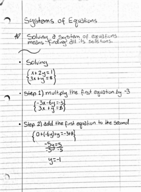 Systems of Equations
Solving a system of equations
means "finding" all its solutions.
• Solving
{x + 2y = 1
{3x + y = 8
• Step 1) multiply the first equation by -3
{-3x - 6y = -3
{3x + y = 8
• Step 2) add the first equation to the second
y = -1